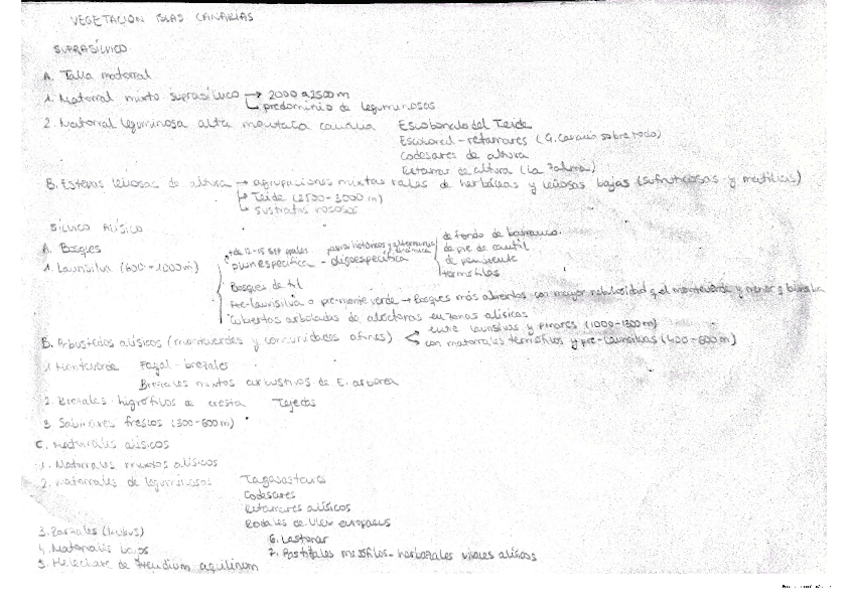 VEGETACIÓN ISLAS CANARIAS
SUPRASÍLVICO
A. Talla matorral
1. Matorral mixto suprasílvico → 2000 a 2500 m
↳ predominio de leguminosas
2. Matorral leguminosa alta montaña canaria Escobonal del Teide
Escobonal-retamares (G. Canaria sobre todo)
Codesares de altura
Retamar de altura (La Palma)
B. Estepas leñosas de altura → agrupaciones mixtas ralas de herbáceas y leñosas bajas (sufruticosas y
↳ Teide (2500-3000 m)
↳ sustratos rocosos
SÍLVICO ALÍSICO
A. Bosques
1. Laurisilva (600-1000m)
+ de 12-15 ssp
pluriespecífica - oligoespecífica
de fondo de barranco
de pie de cantil
de pendiente
termófilas
Bosques de til
Pre-laurisilva o pre-monteverde → Bosques más abiertos con mayor nubosidad q el monteverde y menor q
Cubiertas arboladas de alóctonas en zonas alísicas
B. Arbustedos alísicos (monteverdes y comunidades afines)
entre laurisilvas y pinares (1000-1300m)
con matorrales termófilos y pre-laurisilvas (400-600m)
1. Monteverde Fayal-brezales
Brezales mixtos arbustivos de E. arborea
2. Brezales higrófilos de cresta Tejedas
3. Sabinares frescos (300-600m)
C. Matorrales alísicos
1. Matorrales mixtos alísicos
2. Matorrales de leguminosas Tagasastares
Codesares
Retamares alísicos
Rodales de Ulex europaeus
3. Zarzales (Rubus)
6. Lastonar
4. Matorrales bajos
7. Pastizales mesófilos-herbazales vivaces alísicos
5. Helechares de Pteridium aquilinum